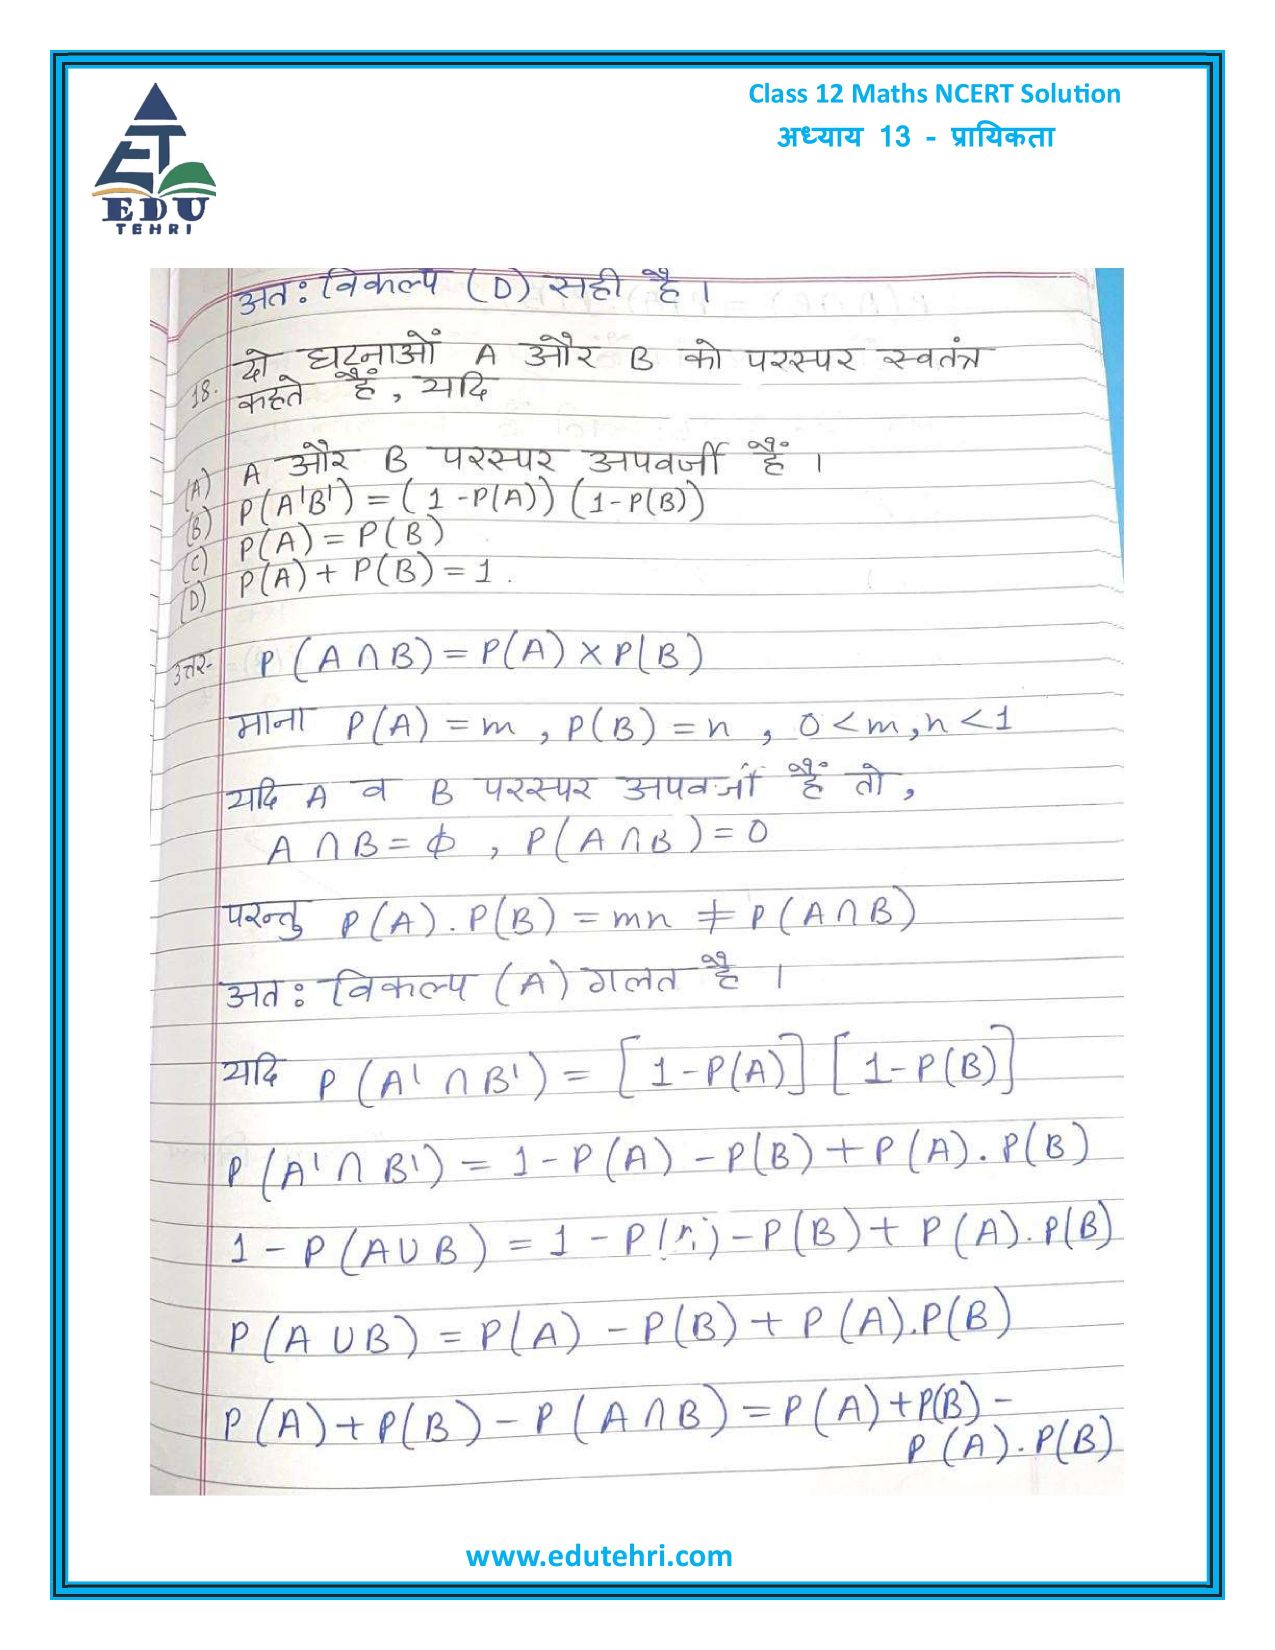 Class 12 Maths NCERT Solution
अध्याय 13 - प्रायिकता
EDU
TEHRI
अतः विकल्प (D) सही है ।
18. दो घटनाओं A और B को परस्पर स्वतंत्र
कहते हैं, यदि
(A) A और B परस्पर अपवर्जी हैं ।
(B) P(A'B') = (1-P(A)) (1-P(B))
(C) P(A) = P(B)
(D) P(A) + P(B) = 1.
उत्तर- P(A∩B) = P(A) × P(B)
माना P(A) = m, P(B) = n, 0 < m, n < 1
यदि A व B परस्पर अपवर्जी हैं तो,
A∩B = ϕ, P(A∩B) = 0
परन्तु P(A).P(B) = mn ≠ P(A∩B)
अतः विकल्प (A) गलत है ।
यदि P(A'∩B') = [1-P(A)] [1-P(B)]
P(A'∩B') = 1-P(A) - P(B) + P(A).P(B)
1-P(A∪B) = 1-P( ) - P(B) + P(A).P(B)
P(A∪B) = P(A) - P(B) + P(A).P(B)
P(A) + P(B) - P(A∩B) = P(A) + P(B) -
P(A).P(B)
www.edutehri.com